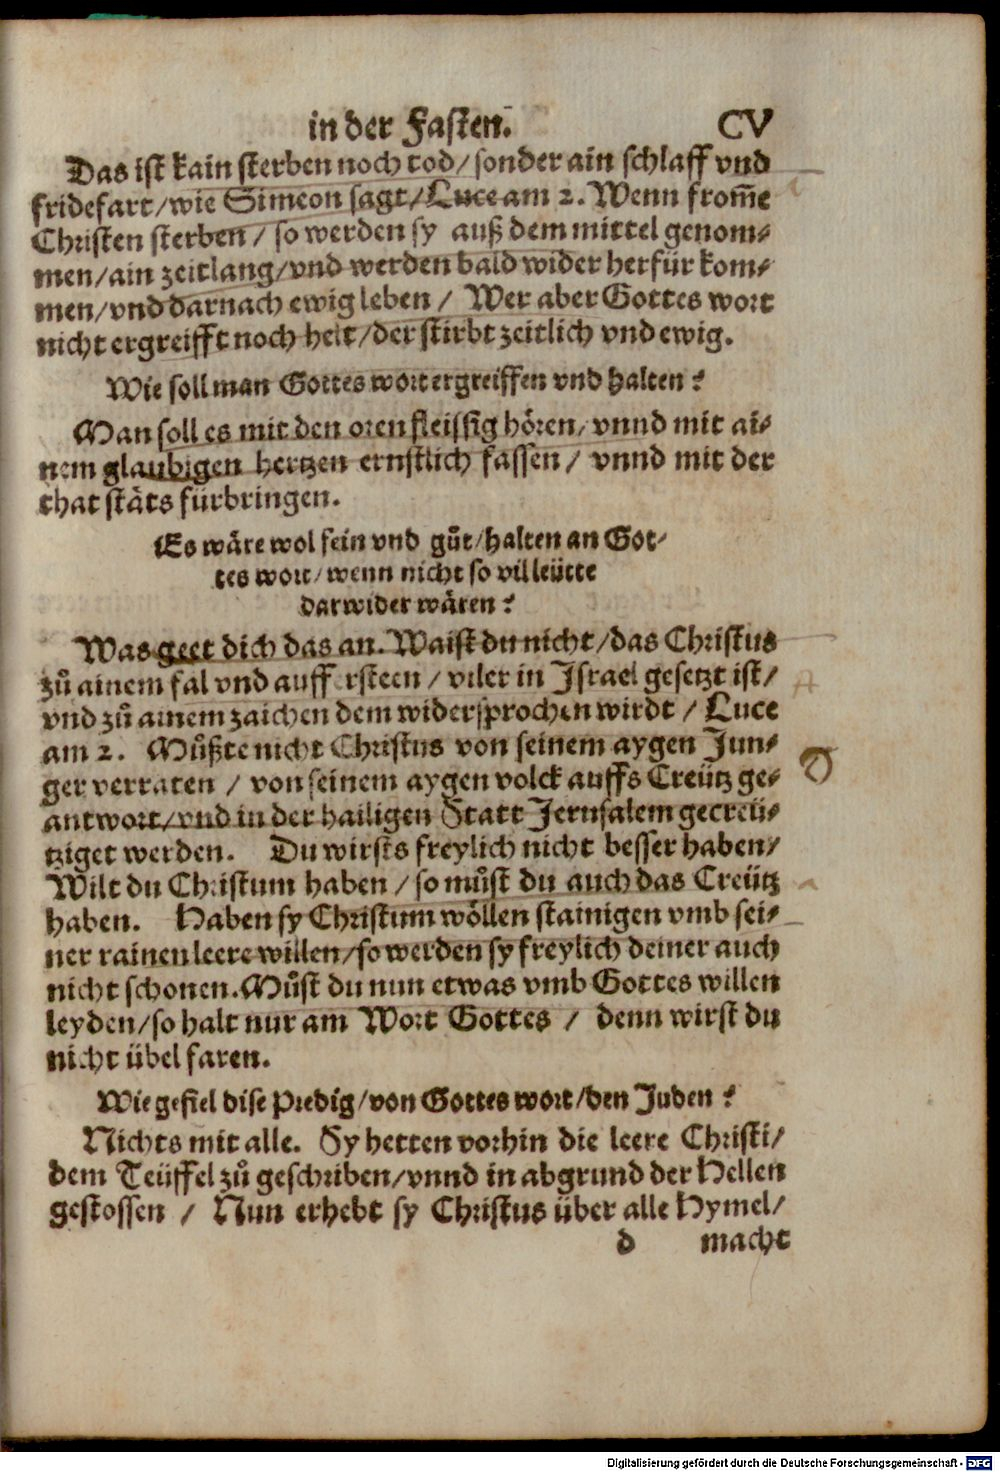 in der Fasten. CV
Das ist kain sterben noch tod/ sonder ain schlaff vnd
fridefart/wie Simeon sagt/Luce am 2. Wenn from̃e
Christen sterben / so werden sy auß dem mittel genom-
men/ain zeitlang/vnd werden bald wider herfür kom-
men/vnd darnach ewig leben / Wer aber Gottes wort
nicht ergreifft noch helt/der stirbt zeitlich vnd ewig.
Wie soll man Gottes wort ergreiffen vnd halten?
Man soll es mit den oren fleissig hören/ vnnd mit ai-
nem glaubigen hertzen ernstlich fassen / vnnd mit der
that stäts fürbringen.
Es wäre wol fein vnd gůt/halten an Got-
tes wort/wenn nicht so vil leütte
darwider wären?
Was geet dich das an. Waist du nicht/das Christus
zů ainem fal vnd auff ersteen / viler in Israel gesetzt ist/
vnd zů ainem zaichen dem widersprochen wirdt / Luce
am 2. Můßte nicht Christus von seinem aygen Jun-
ger verraten / von seinem aygen volck auffs Creütz ge-
antwort/vnd in der hailigen Statt Jerusalem gecreü-
tziget werden. Du wirsts freylich nicht besser haben/
Wilt du Christum haben / so můst du auch das Creütz
haben. Haben sy Christum wöllen stainigen vmb sei-
ner rainen leere willen/so werden sy freylich deiner auch
nicht schonen. Můst du nun etwas vmb Gottes willen
leyden/so halt nur am Wort Gottes / denn wirst du
nicht übel faren.
Wie gefiel dise Predig/von Gottes wort/den Juden?
Nichts mit alle. Sy hetten vorhin die leere Christi/
dem Teüffel zů geschriben/vnnd in abgrund der Hellen
gestossen / Nun erhebt sy Christus über alle Hymel/
d macht
Digitalisierung gefördert durch die Deutsche Forschungsgemeinschaft - DFG